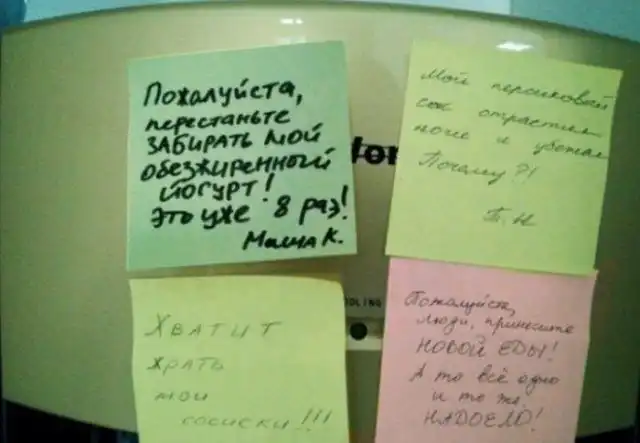 Пожалуйста,
перестаньте
ЗАБИРАТЬ МОЙ
обезжиренный
йогурт!
Это уже 8 раз!
Маша К.
Мой персиковый
сок отрастил
ноги и убежал
Почему?!
Т. Н
Хватит
жрать
мои
сосиски!!!
Пожалуйста,
люди, принесите
НОВОЙ ЕДЫ!
А то всё одно
и то же.
НАДОЕЛО!